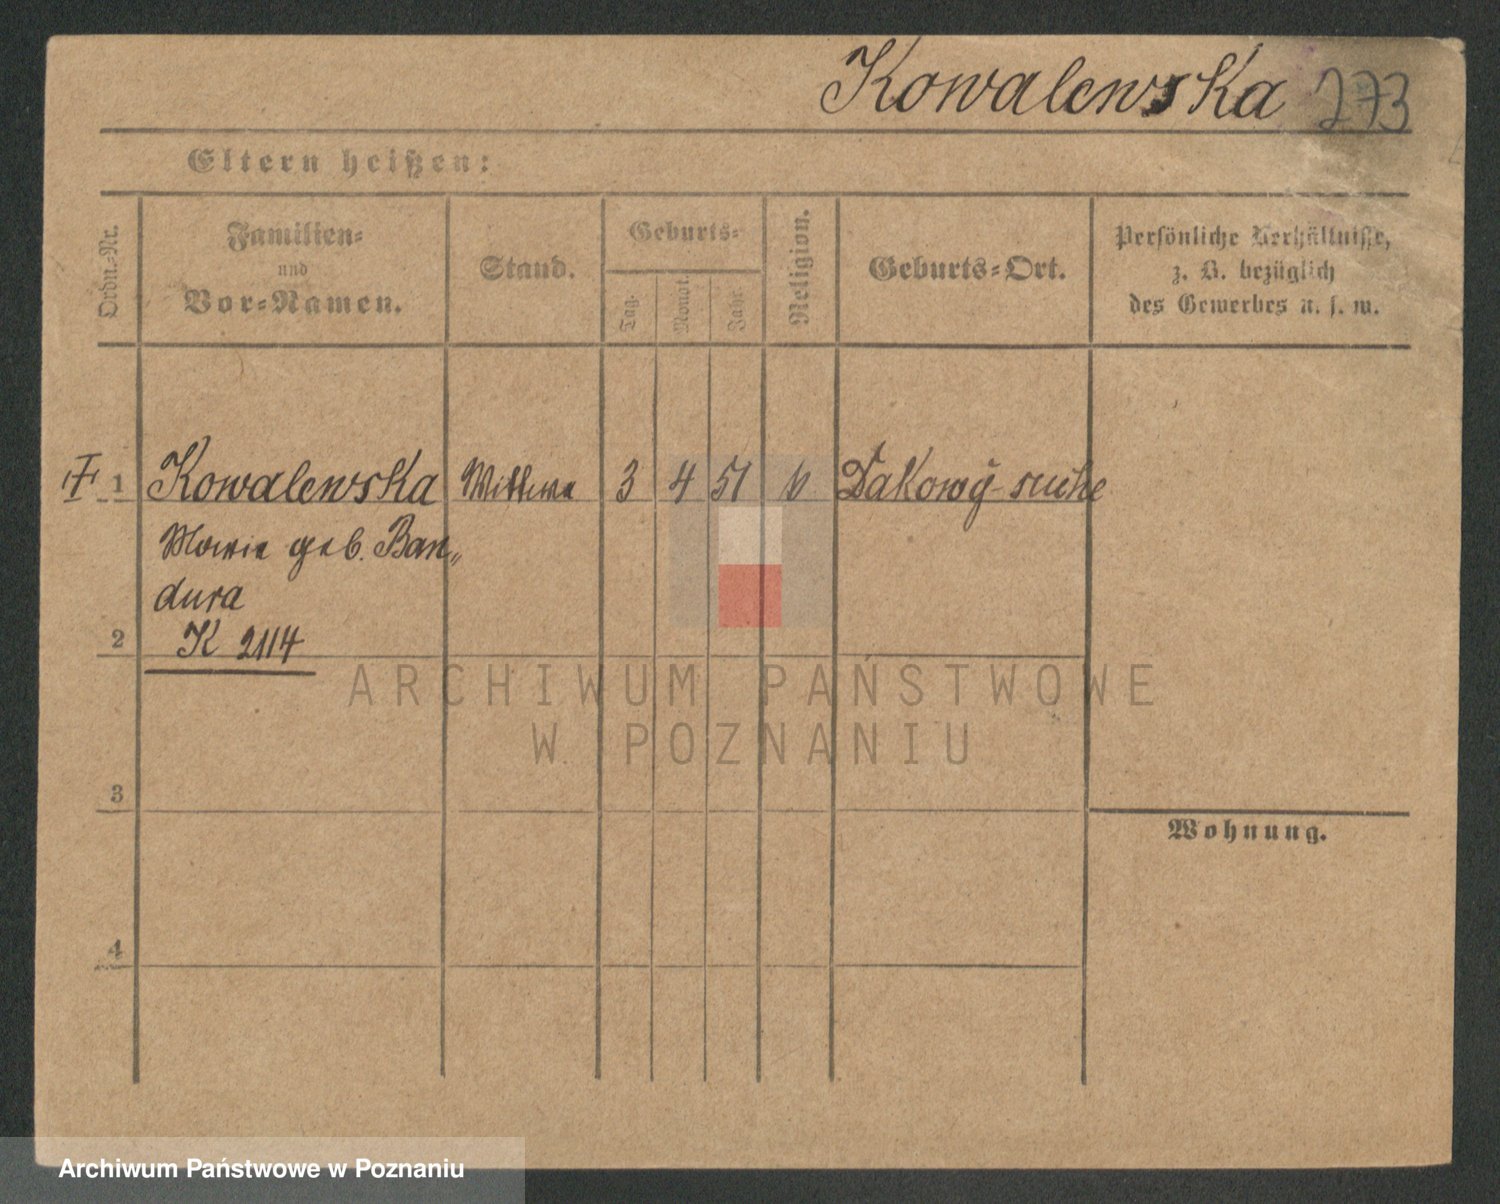 Kowalewska 273
Eltern heißen:
Ordn.-Nr.
Familien-
und
Vor-Namen.
Stand.
Geburts-
Tag.
Monat.
Jahr.
Religion.
Geburts-Ort.
Persönliche Verhältnisse,
z. B. bezüglich
des Gewerbes u. s. w.
1 Kowalewska Wittwe 3 4 51 Dakowy-suche
Marie geb. Ban„
dura
2 K 2114
3
4
Wohnung.
ARCHIWUM PAŃSTWOWE
W POZNANIU
Archiwum Państwowe w Poznaniu